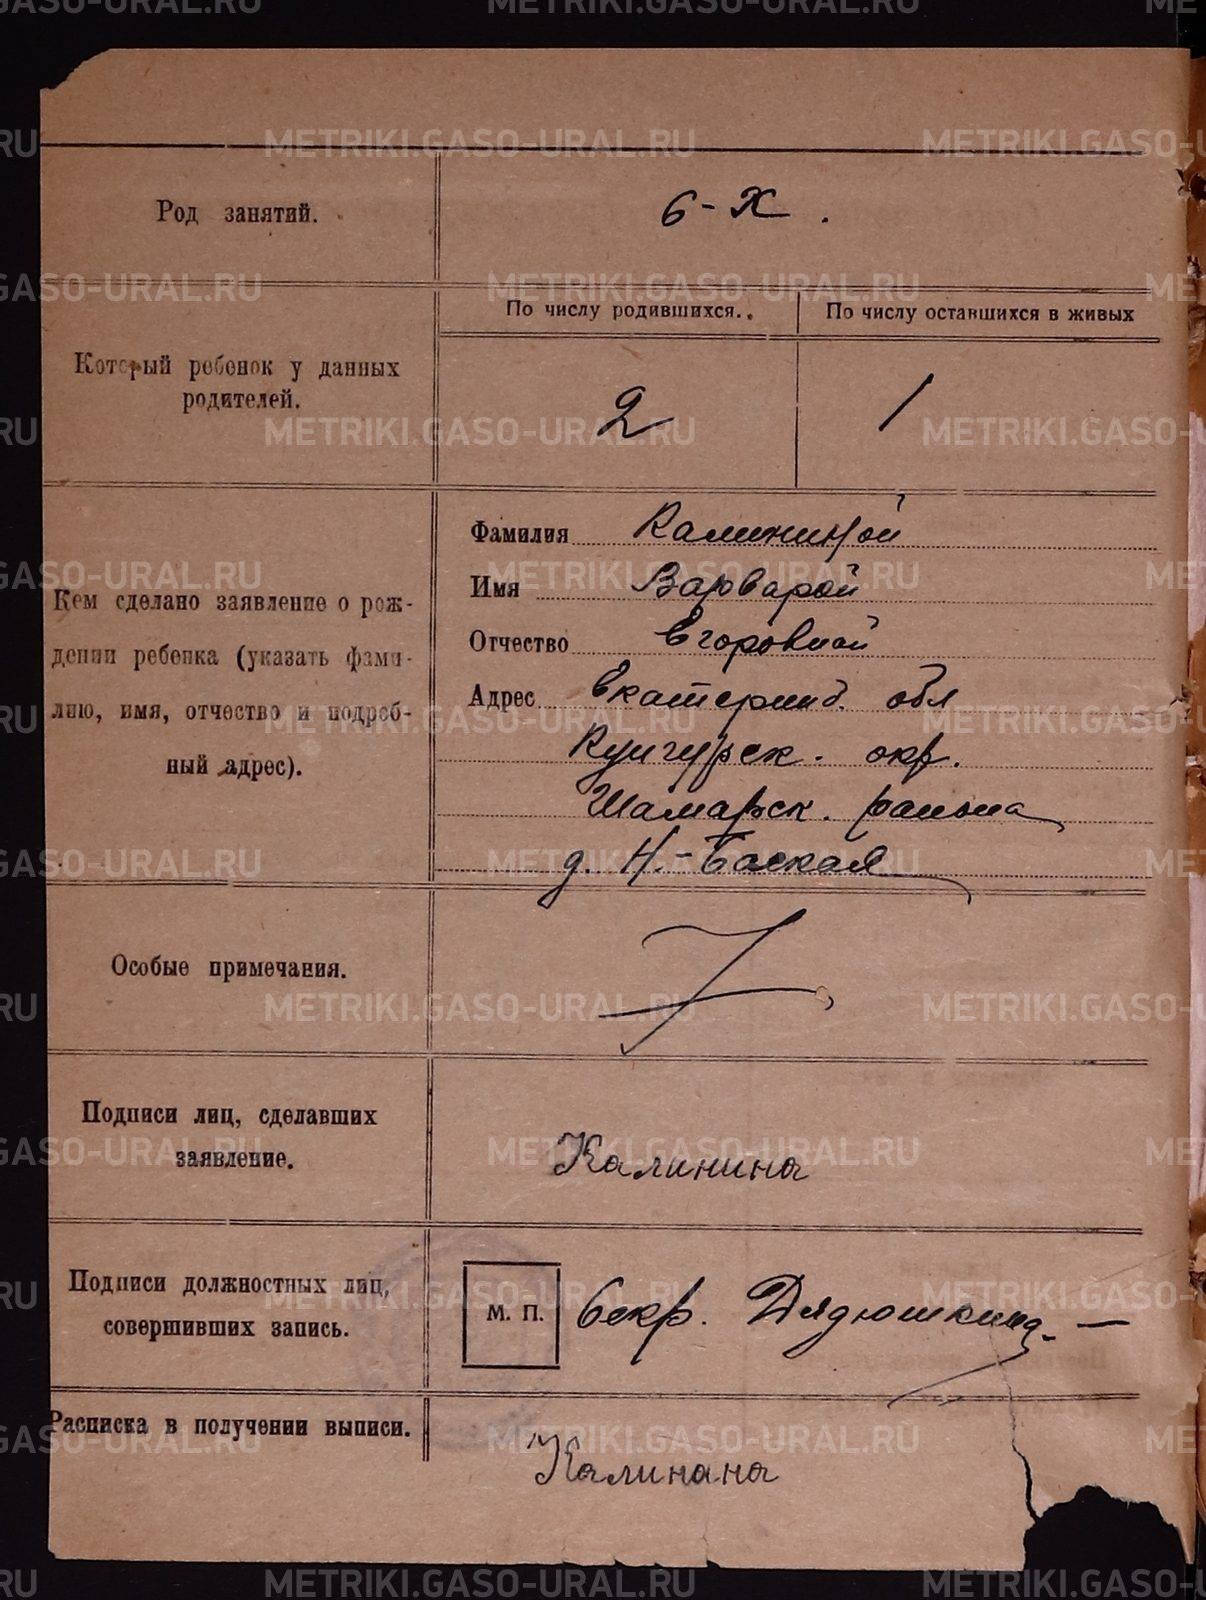 METRIKI.GASO-URAL.RU
Род занятий.
б-х.
Который ребенок у данных
родителей.
По числу родившихся.
По числу оставшихся в живых
2
1
Кем сделано заявление о рож-
дении ребенка (указать фами-
лию, имя, отчество и подроб-
ный адрес).
Фамилия Калининой
Имя Варварой
Отчество Егоровной
Адрес Екатеринб. обл
Кунгурск. окр.
Шамарск. района
д. Н.-Баская
Особые примечания.
Подписи лиц, сделавших
заявление.
Калинина
Подписи должностных лиц,
совершивших запись.
М. П.
Секр. Дядюшкина
Расписка в получении выписи.
Калинина